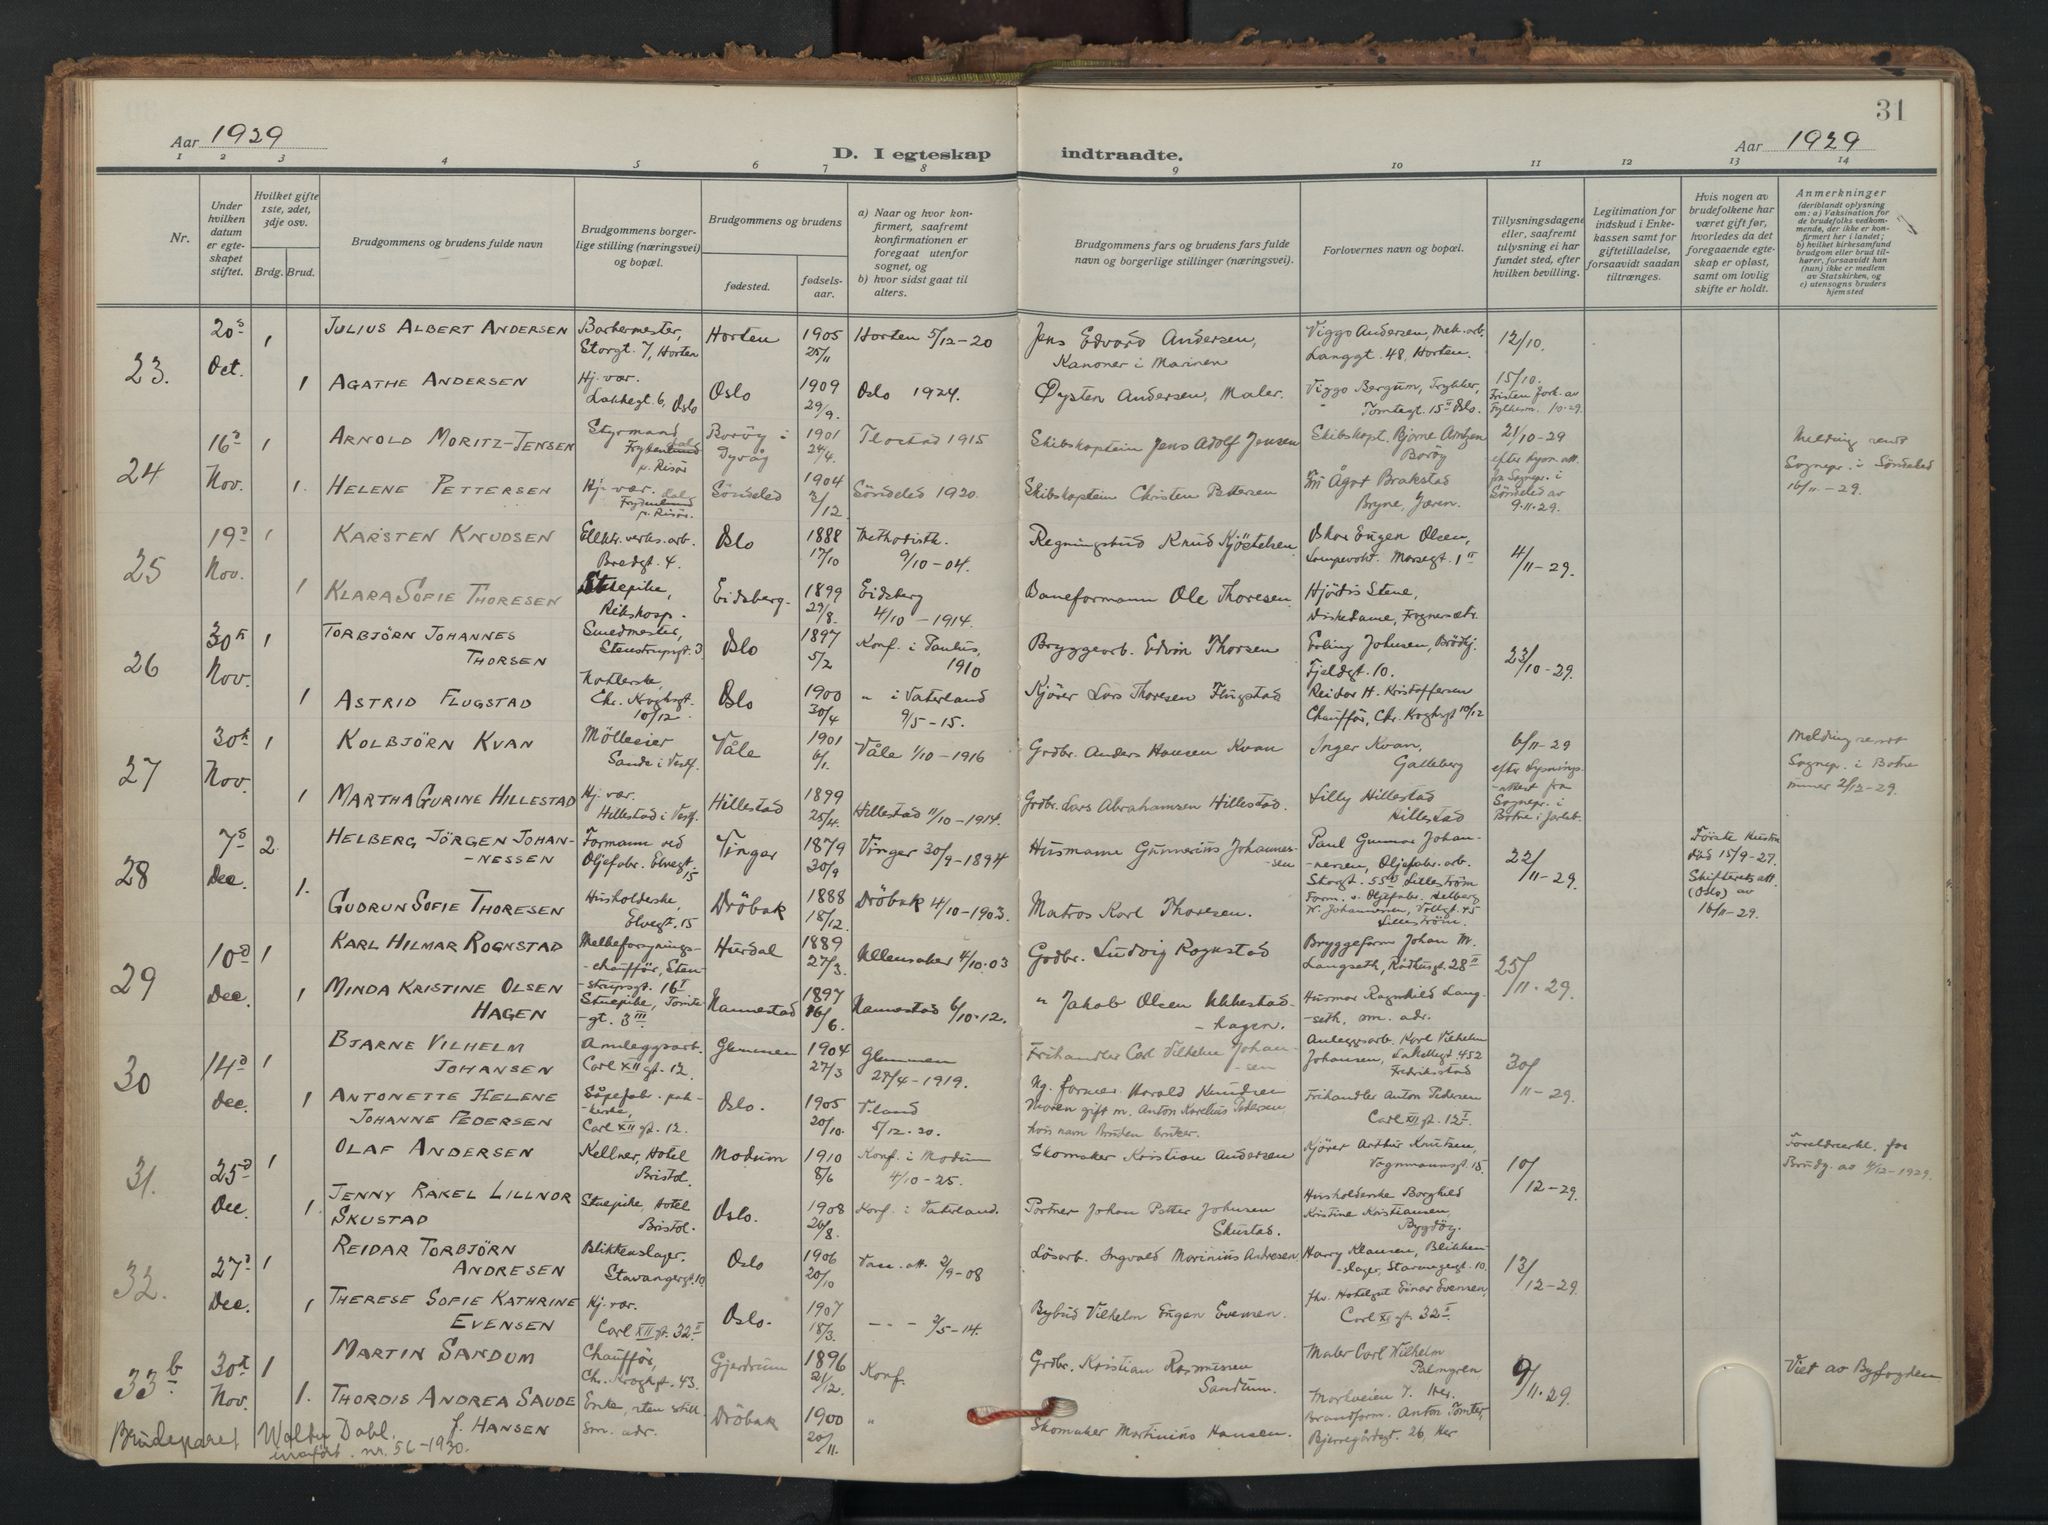 31
Aar 1929
D. I egteskap
indtraadte.
Aar 1929
1 2 3 4 5 6 7 8 9 10 11 12 13 14
Nr.
Under hvilken datum er egteskapet stiftet.
Hvilket gifte 1ste, 2det, 3dje osv.
Brdg. Brud.
Brudgommens og brudens fulde navn
Brudgommens borgerlige stilling (næringsvei) og bopæl.
Brudgommens og brudens
fødested.
fødselsaar.
a) Naar og hvor konfirmert, saafremt konfirmationen er foregaat utenfor sognet, og
b) hvor sidst gaat til alters.
Brudgommens fars og brudens fars fulde navn og borgerlige stillinger (næringsvei).
Forlovernes navn og bopæl.
Tillysningsdagene eller, saafremt tillysning ei har fundet sted, efter hvilken bevilling.
Legitimation for indskud i Enkekassen samt for giftetilladelse, forsaavidt saadan tiltrænges.
Hvis nogen av brudefolkene har været gift før, hvorledes da det foregaaende egteskap er opløst, samt om lovlig skifte er holdt.
Anmerkninger
(deriblandt oplysning om: a) Vaksination for de brudefolks vedkommende, der ikke er konfirmert her i landet; b) hvilket kirkesamfund brudgom eller brud tilhører, forsaavidt han (hun) ikke er medlem av Statskirken, og c) utensogns bruders hjemsted
23. 20s Oct. 1 JULIUS ALBERT ANDERSEN Barbermester, Storgt. 7, Horten Horten 1905 25/11 Horten 5/12-20 Jens Edvard Andersen, Kanoner i Marinen Viggo Andersen, Mek. arb. Langgt. 48, Horten. 12/10.
1 AGATHE ANDERSEN Hj. vær. Lakkegt. 6, Oslo Oslo 1909 29/9. Oslo 1924. Øysten Andersen, Maler. Viggo Bergum, Trykker, Tomtegt. 15II Oslo. 15/10. Fristen fork. av Fylkesm. /10-29.
24 16s Nov. 1 ARNOLD MORITZ-JENSEN Styrmand p. Risør Borøy i Dyvåg 1901 24/4. 1915 Skibskaptein Jens Adolf Jensen Skibskapt. Bjarne Arntzen Borøy 21/10-29 Melding sendt Sognepr. i Søndeled 16/11-29.
1. HELENE PETTERSEN Hj. vær. p. Risør. Søndeled 1904 2/12. Søndeled 1920. Skibskaptein Christen Pettersen Frk Ågot Brakstad Bryne, Jæren. fra Sognepr. i Søndeled av 9-11-29.
25 19d Nov. 1 KARSTEN KNUDSEN Elektr. verks. arb. Bredgt. 4. Oslo 1888 17/10 Methodistk. 9/10-04. Regningsbud Knud Kjöstelsen Oskar Eugen Olsen, Lampevokt. 4/11-29.
1 KLARA SOFIE THORESEN Stuepike, Rikshosp. Eidsberg. 1899 29/8. Eidsberg 4/10-1914. Baneformann Ole Thoresen Hjördis Stene, Diskedame, Frognersetr.
26 30te Nov. 1 TORBJÖRN JOHANNES THORSEN Smedmester, Stenstrupsgt. 3 Oslo 1897 5/2 Konf. i Paulus, 1910 Bryggearb. Edvin Thorsen Erling Johnsen, Brödkj. Fjeldgt. 10. 23/10-29.
1 ASTRID FLUGSTAD Chr. Kroghsgt. 10/12. Oslo 1900 30/4 " i Vaterland 9/5-15. Kjører Lars Thoresen Flugstad Reidar H. Kristoffersen Chauffør, Chr. Kroghsgt 10/12
27 30te Nov. 1 KOLBJÖRN KVAN Mölleeier Sande i Vestf. Våle 1901 6/1. Våle 1/10-1916 Grdbr. Anders Hansen Kvan Inger Kvan, Galleberg 6/11-29 efter lysningsattest fra Sognepr. i Botne i Jarlsb. Melding sendt Sognepr. i Botne 2/12-29.
1 MARTHA GURINE HILLESTAD Hj. vær. Hillestad i Vestf. Hillestad 1899 25/4. Hillestad 11/10-1914. Grdbr. Lars Abrahamsen Hillestad. Lilly Hillestad Hillestad
28 7s Dec. 2 HELBERG JÖRGEN JOHAN-NESSEN Formann ved Oljefabr. Elvegt. 15 Vinger 1879 30/9 Vinger 30/9-1894 Husmann Gunnerius Johannes-sen Paul Gunnar Johan-nessen, Oljefabr. arb. Storgt. 55 Lilleström 22/11-29. Første hustru död 15/9-27. Skifteretsatt. (Oslo) av 16/11-29.
1. GUDRUN SOFIE THORESEN Husholderske, Elvegt. 15 Dröbak 1888 18/12. Dröbak 4/10-1903. Matros Karl Thoresen. Form. v. Oljefabr. Helberg Johannessen, Voldgt. 45 Lilleström.
29 10d Dec. 1 KARL HILMAR ROGNSTAD Melkeforsynings-chaufför, Sten-strupsgt. 16I Hurdal 1889 27/3. Ullensaker 4/10-03 Grdbr. Ludvig Rognstad Bryggeform Johan M. Langseth, Rådhusgt. 28II 25/11-29.
1 MINDA KRISTINE OLSEN HAGEN Stuepike, Tomte-gt. 3III Nannestad 1897 16/6. Nannestad 6/10-12. " Jakob Olsen Ukkestad-hagen. Husmor Ragnhild Lang-seth, sm. adr.
30 14d Dec. 1 BJARNE VILHELM JOHANSEN Anleggsarb. Carl XII gt. 12. Glemmen 1904 27/3 Glemmen 27/4-1919. Frihandler Carl Vilhelm Johan-sen Anleggsarb. Karl Vilhelm Johansen, Fredriksstad 30/11-29.
1 ANTONETTE HELENE JOHANNE PEDERSEN Såpefabr. pak-kerske, Carl XII gt. 12. Oslo. 1905 20/10. V.land 5/12-20. Ng. former Harald Knudsen Moren gift m. Anton Karelius Pedersen, hvis navn Bruden bruker. Frihandler Anton Pedersen Carl XII gt. 12I.
31. 25d Dec. 1 OLAF ANDERSEN Kellner, Hotel Bristol. Modum 1910 8/6 Konf. i Modum 4/10-25. Skomaker Kristian Andersen Kjører Arthur Knutsen, Vognmannsgt. 15 10/12-29. Foreldreerkl. for Brudg. av 4/12-1929.
1. JENNY RAKEL LILLNOR SKUSTAD Stuepike, Hotel Bristol. Oslo. 1908 26/8. Konf. i Vaterland. Portner Johan Petter Johnsen Skustad. Husholderske Borghild Kristine Kristiansen, Bygdöy.
32. 27d Dec. 1 REIDAR TORBJÖRN ANDRESEN Blikkenslager, Stavangergt. 10 Oslo 1906 20/10 Vacc. att. 2/9-08 Løsarb. Ingvald Marinius Andresen Harry Klausen, Blikken-slager, Stavangergt. 10. 13/12-29.
1 THERESE SOFIE KATHRINE EVENSEN Hj. vær. Carl XII gt. 32II Oslo. 1907 18/3. - - - 2/5-14. Bybud Vilhelm Eugen Evensen. fhv. Hotelgut Einar Evensen Carl XII gt. 32II
33b. 30te Nov. 1 MARTIN SANDUM Chaufför, Chr. Kroghsgt. 43. Gjerdrum 1896 21/12. Konf. Grdbr. Kristian Rasmussen Sandum. Maler Carl Vilhelm Palmgren Markveien 7. Her. 9/11-29. Viet av Byfogden.
1. THORDIS ANDREA SAUDE f. HANSEN Enke, uten still. Sm. adr. Dröbak 1900 20/11. " Skomaker Martinius Hansen. Brandform. Anton Tomter, Bjerregårdsgt. 26, Her
Brudeparet Walter Dahl innført nr. 56-1930.